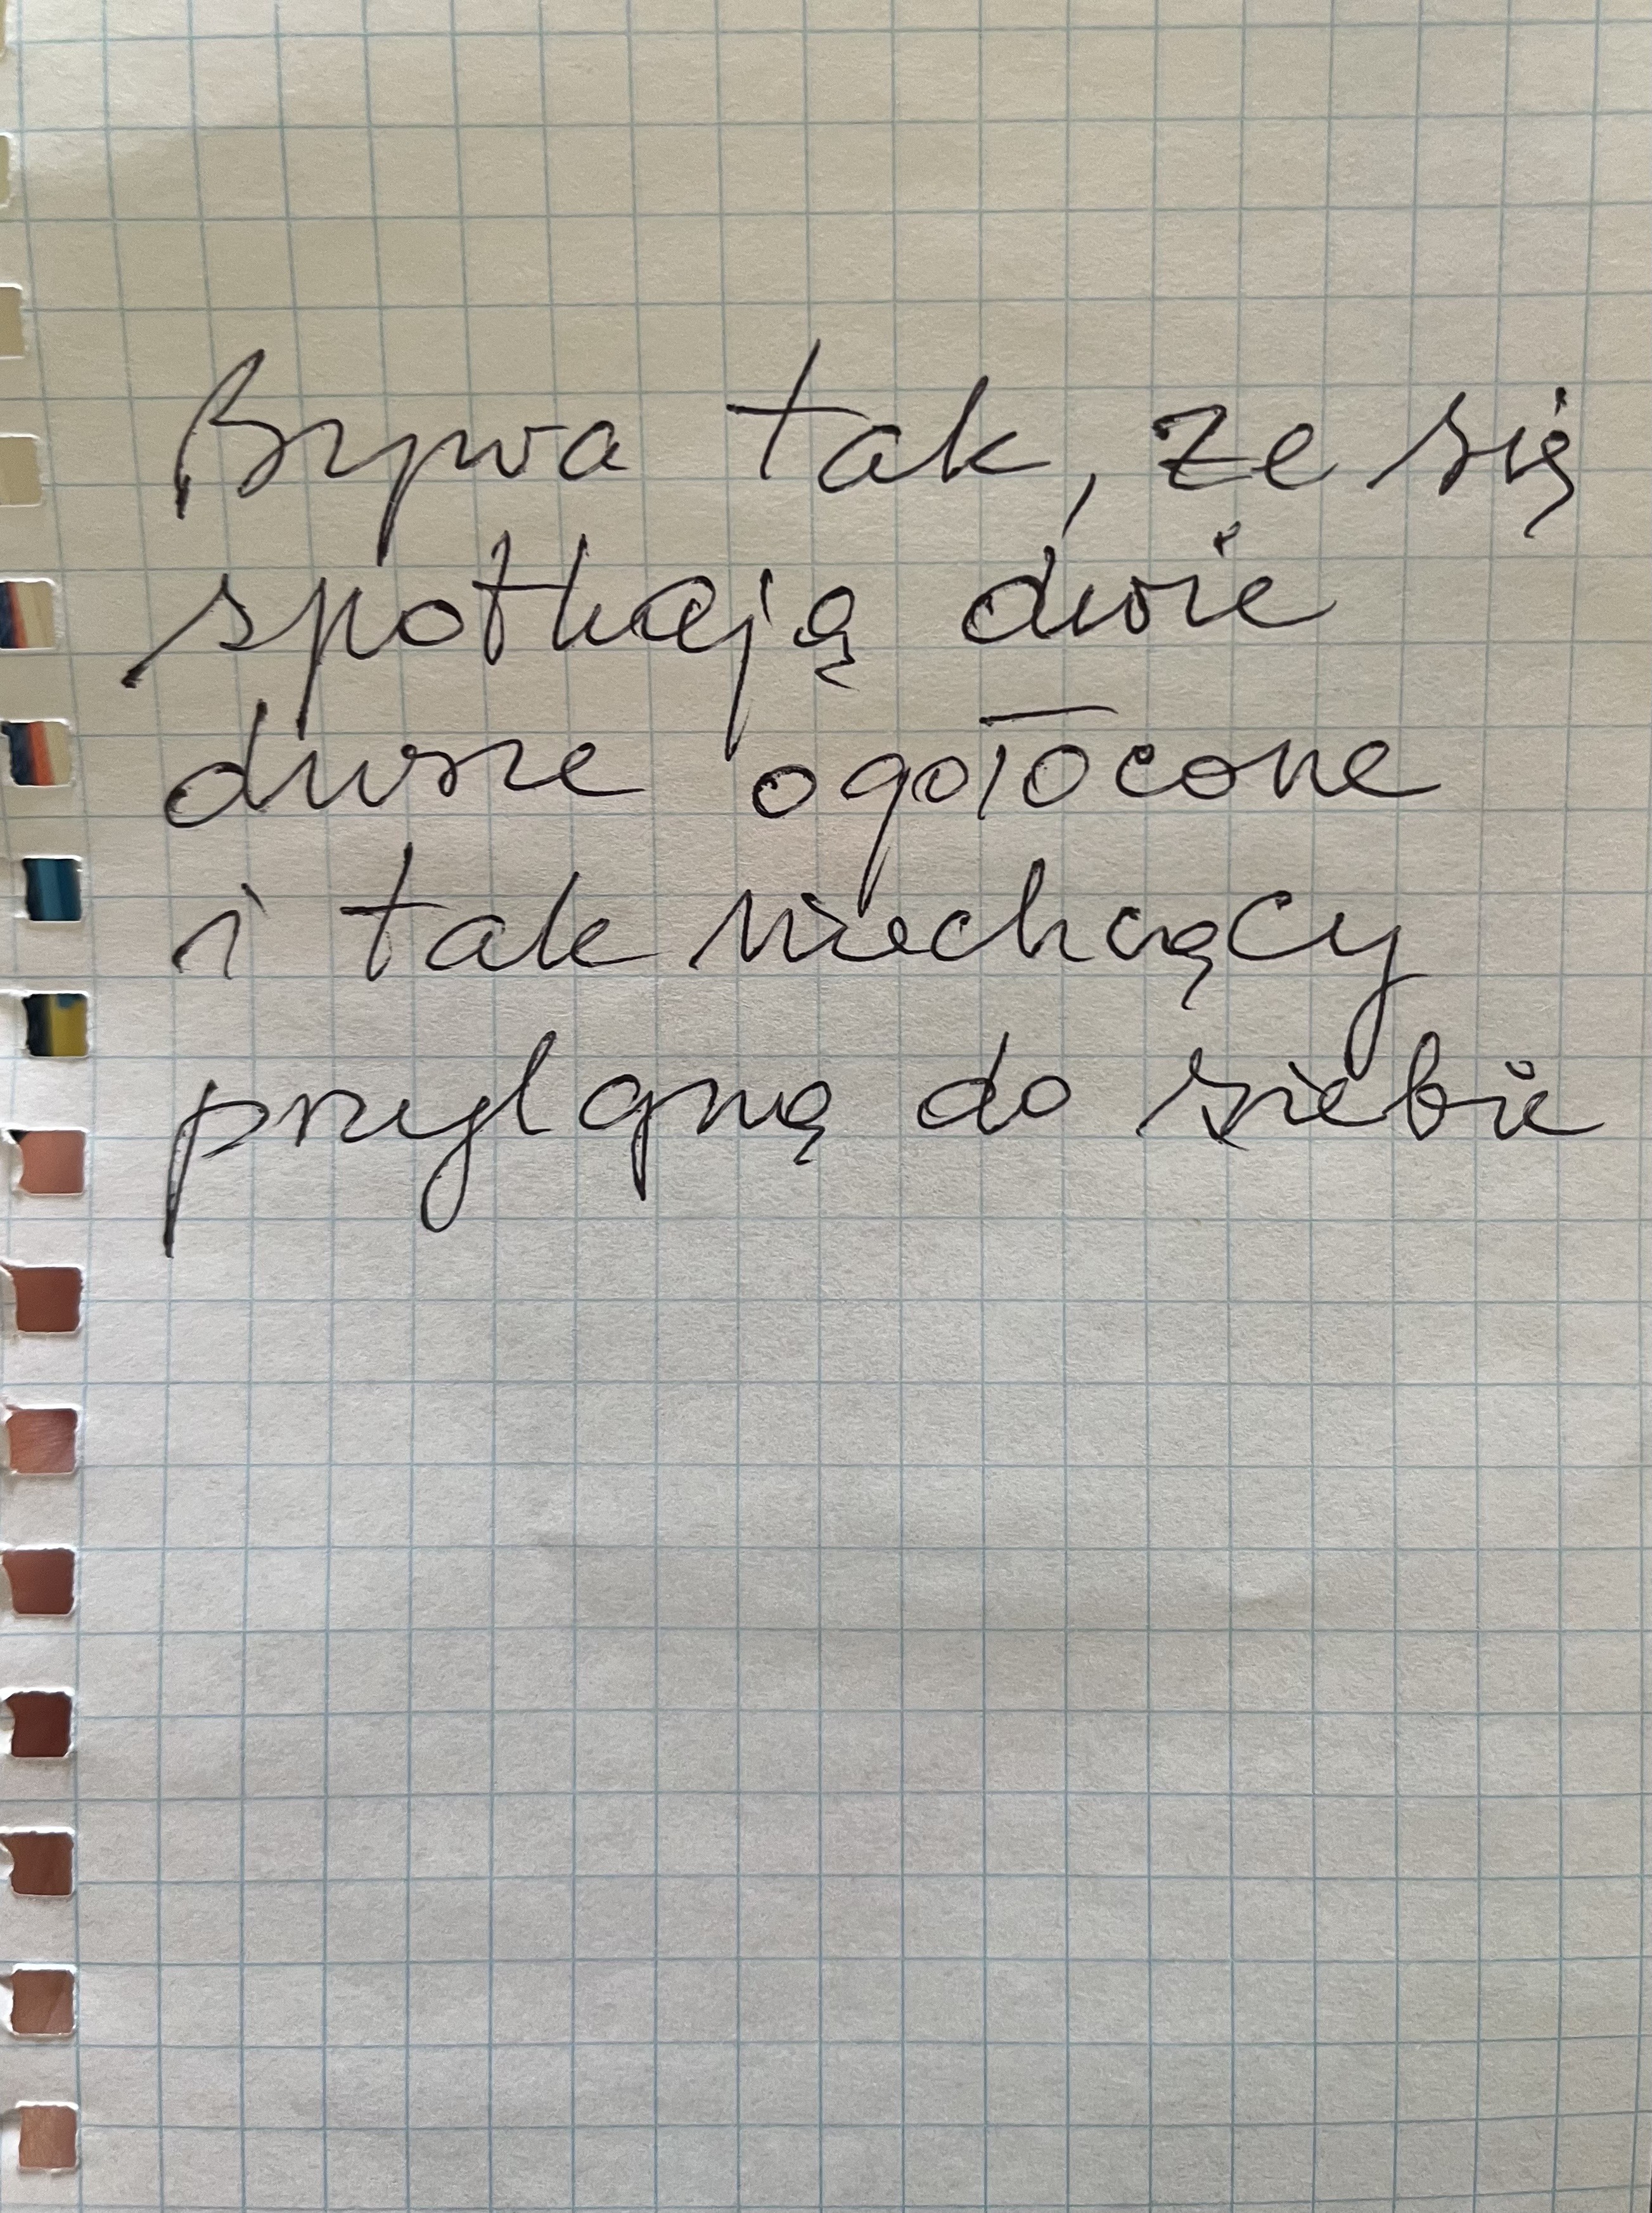 Bywa tak, że się
spotkają dwie
dusze ogołocone
i tak niechcący
przylgną do siebie